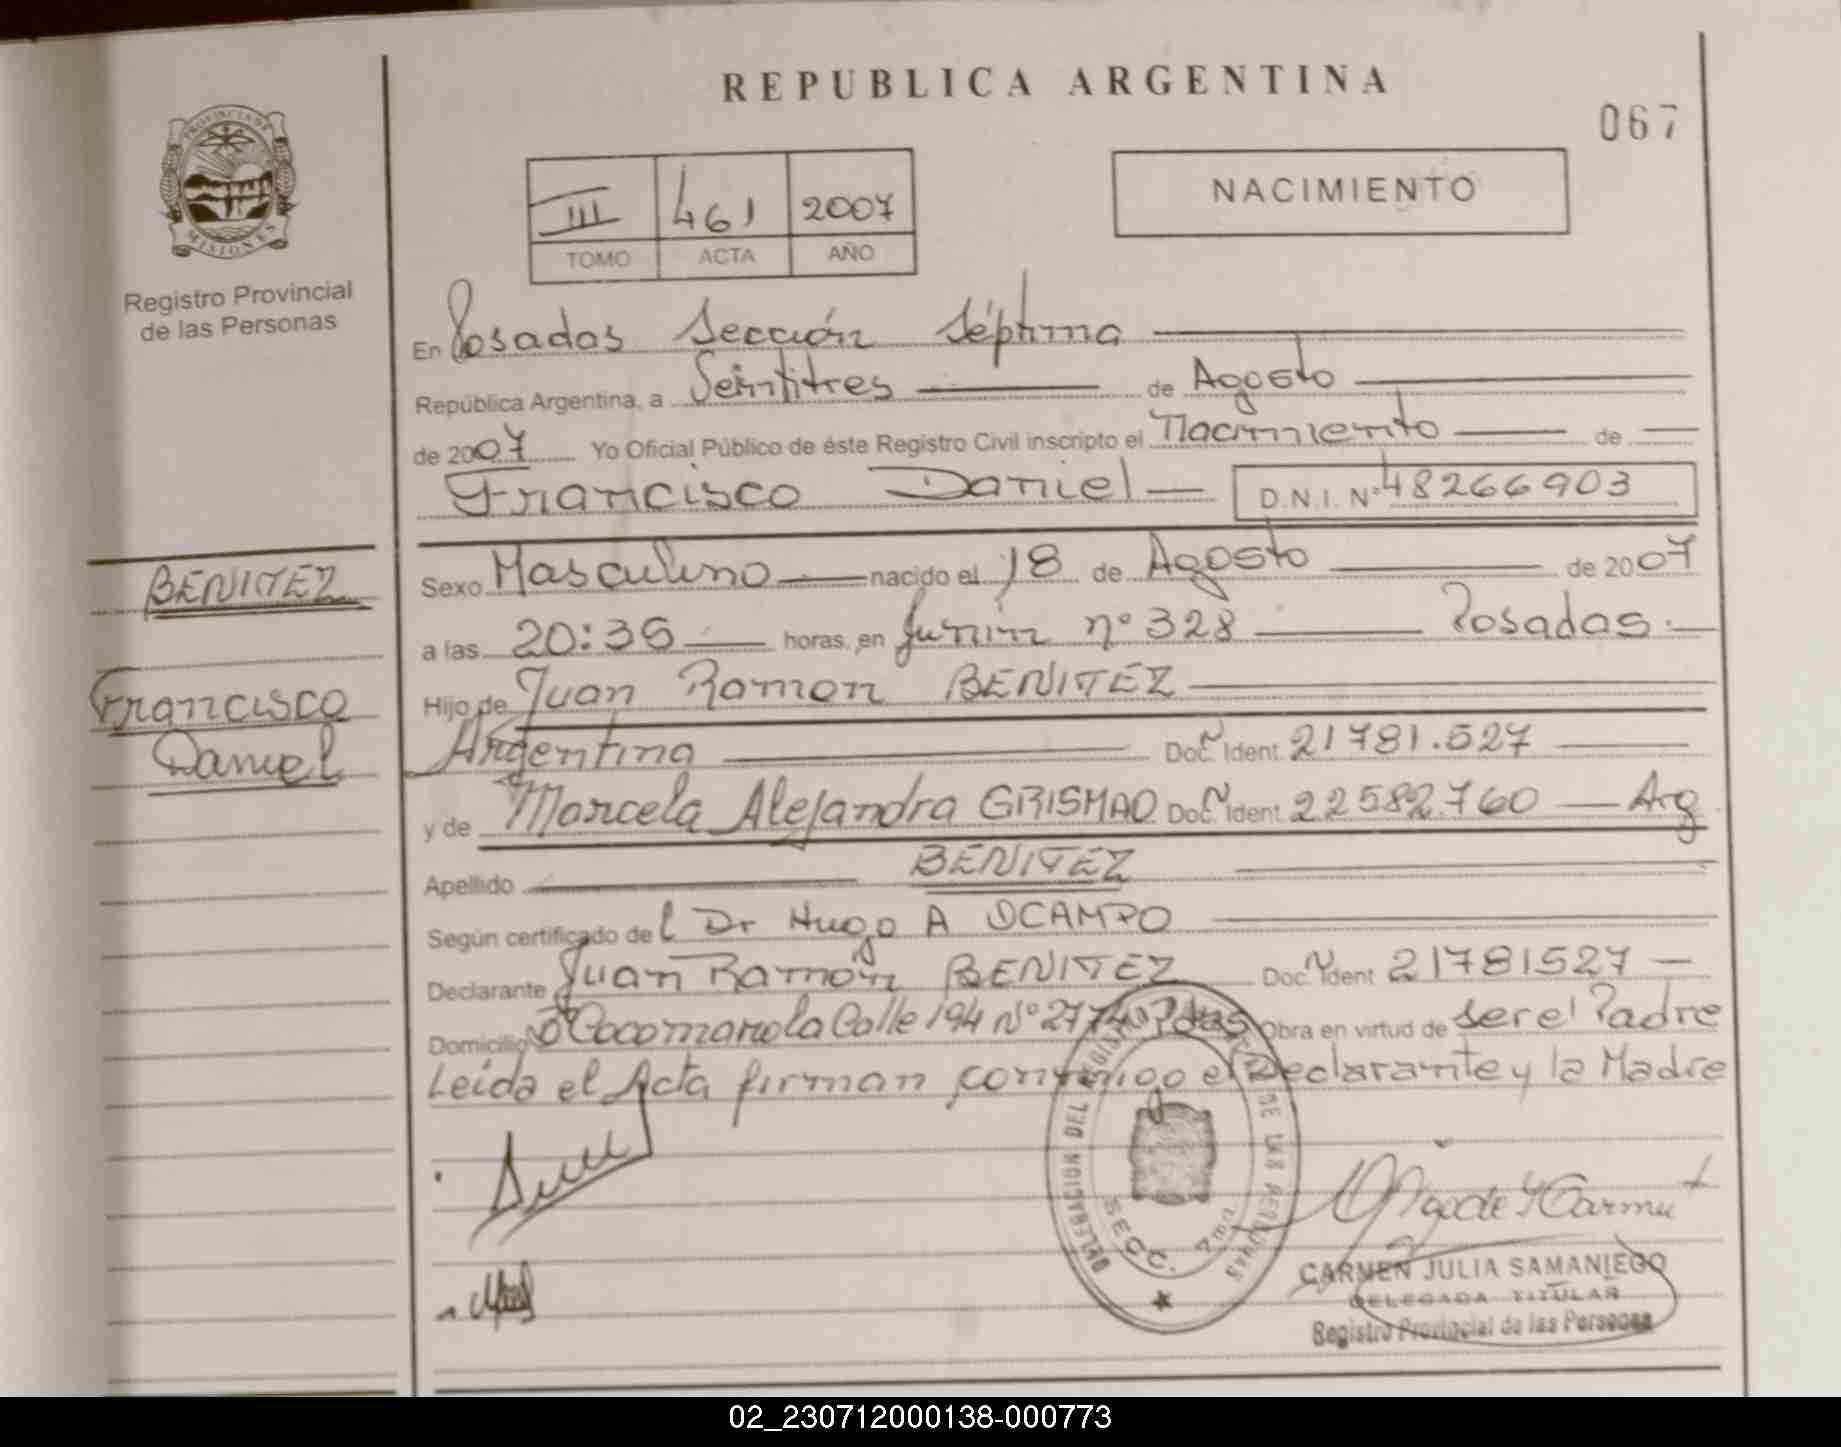 REPUBLICA ARGENTINA
067
PROVINCIA DE
MISIONES
Registro Provincial
de las Personas
NACIMIENTO
III 461 2007
TOMO ACTA AÑO
En Posadas Sección Séptima
República Argentina, a Veintitres de Agosto
de 2007 Yo Oficial Público de éste Registro Civil inscripto el Nacimiento de
Francisco Daniel D.N.I. Nº 48266903
BENITEZ
Francisco
Daniel
Sexo Masculino nacido el 18 de Agosto de 2007
a las 20:35 horas, en Junín nº 328 Posadas.
Hijo de Juan Ramon BENITEZ
Argentina Doc. Ident. 21781.527
y de Marcela Alejandra GRISMAO Doc. Ident. 22582.760 Arg
Apellido BENITEZ
Según certificado del Dr Hugo A OCAMPO
Declarante Juan Ramón BENITEZ Doc. Ident 21781527
Domicilio Bº Cocomarola Calle 194 Nº 2774 Pdas Obra en virtud de ser el Padre
Leída el Acta firman conmigo el Declarante y la Madre
DELEGACION DEL REGISTRO DE LAS PERSONAS
SECC. 7ma.
CARMEN JULIA SAMANIEGO
DELEGADA TITULAR
Registro Provincial de las Personas
02_230712000138-000773